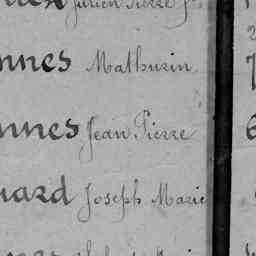 Julien Pierre
nnes Mathurin
nnes Jean Pierre
nard Joseph Marie